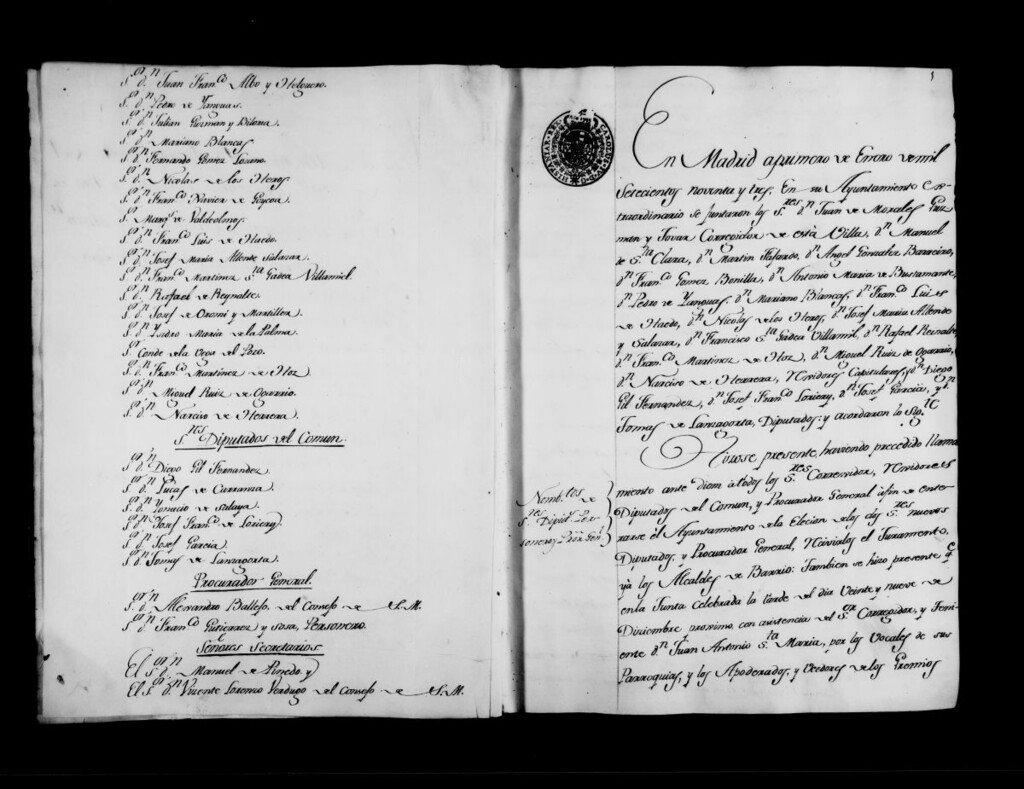 S.ᵒʳ d.ⁿ Juan Fran.ᶜᵒ Albo y Helguero.
S.ᵒʳ d.ⁿ Pedro de Yanguas.
S.ᵒʳ d.ⁿ Julian Guzman y Viloria.
S.ᵒʳ d.ⁿ Mariano Blancas
S.ᵒʳ d.ⁿ Fernando Gomez Lozano.
S.ᵒʳ d.ⁿ Nicolas de los Heros.
S.ᵒʳ d.ⁿ Fran.ᶜᵒ Xavier de Goycoa.
S.ᵒʳ Marq.ˢ de Valdeolmos.
S.ᵒʳ d.ⁿ Fran.ᶜᵒ Luis de Hardo.
S.ᵒʳ d.ⁿ Josef Maria Allende Salazar.
S.ᵒʳ d.ⁿ Fran.ᶜᵒ Martinez S.ᵗᵃ Gadea Villamiel
S.ᵒʳ d.ⁿ Rafael de Reynalte.
S.ᵒʳ d.ⁿ Josef de Oromi y Martiller.
S.ᵒʳ d.ⁿ Ysidro Maria de la Palma.
S.ᵒʳ Conde de la Vega del Pozo.
S.ᵒʳ d.ⁿ Fran.ᶜᵒ Martinez de Hoz.
S.ᵒʳ d.ⁿ Miguel Ruiz de Ogarrio.
S.ᵒʳ d.ⁿ Narciso de Herrera.
S.ʳᵉˢ Diputados del Comun.
S.ᵒʳ d.ⁿ Diego Gil Fernandez.
S.ᵒʳ d.ⁿ Lucas de Carranza.
S.ᵒʳ d.ⁿ Ygnacio de
S.ᵒʳ d.ⁿ Josef Fran.ᶜᵒ de Loriery.
S.ᵒʳ d.ⁿ Josef Garcia.
S.ᵒʳ d.ⁿ Tomas de Lanzagorta.
Procurador General.
S.ᵒʳ d.ⁿ Alexandro Balleso. del Consejo de S.M.
S.ᵒʳ d.ⁿ Fran.ᶜᵒ Gutierrez y Sosa, Personero.
Señores Secretarios.
El S.ᵒʳ d.ⁿ Manuel de Pinedo. y
El S.ᵒʳ d.ⁿ Vicente Lorenzo Verdugo del Consejo de S.M.
1
En Madrid a primero de Enero de mil
Setecientos noventa y tres, En su Ayuntamiento ex-
traordinario se juntaron los S.ʳᵉˢ d.ⁿ Juan de Morales Guz
man y Tovar Corregidor de esta Villa, d.ⁿ Manuel
de S.ᵗᵃ Clara, d.ⁿ Martin d.ⁿ Angel Gonzalez Barreiro,
d.ⁿ Fran.ᶜᵒ Gomez Bonilla, d.ⁿ Antonio Maria de Bustamante,
d.ⁿ Pedro de Yanguas, d.ⁿ Mariano Blancas, d.ⁿ Fran.ᶜᵒ Luis
de Hardo, d.ⁿ Nicolas de los Heros, d.ⁿ Josef Maria Allende
y Salazar, d.ⁿ Francisco S.ᵗᵃ Gadea Villamil, d.ⁿ Rafael Reynalte
d.ⁿ Fran.ᶜᵒ Martinez de Hoz, d.ⁿ Miguel Ruiz de Ogarrio,
d.ⁿ Narciso de Herrera, Rexidores Capitulares; d.ⁿ Diego
Gil Fernandez, d.ⁿ Josef Fran.ᶜᵒ Loriery, d.ⁿ Josef Garcia, y d.ⁿ
Tomas de Lanzagorta, Diputados: y acordaron lo sig.ᵗᵉ
Nomb.ᵗᵒˢ de
S.ʳᵉˢ Diput. Per-
sonero, y Pror Gen.
Hizose presente, haviendo precedido llama
miento ante diem à todos los S.ʳᵉˢ Correxidor, Rexidores
Diputados del Comun, y Procurador General à fin de ente-
rarse el Ayuntamiento de la Elecion de los dos S.ʳᵉˢ nuevos
Diputados, y Procurador General, Recivirles el Juramento,
y à los Alcaldes de Barrio: Tambien se hizo presente q.ᵉ
en la Junta celebrada la tarde del dia Veinte y nueve de
Diziembre proximo, con asistencia del S.ᵒʳ Corregidor, y Teni-
ente d.ⁿ Juan Antonio S.ᵗᵃ Maria, por los Vocales de sus
Parroquias, y los Apoderados, y Veedores de los Gremios